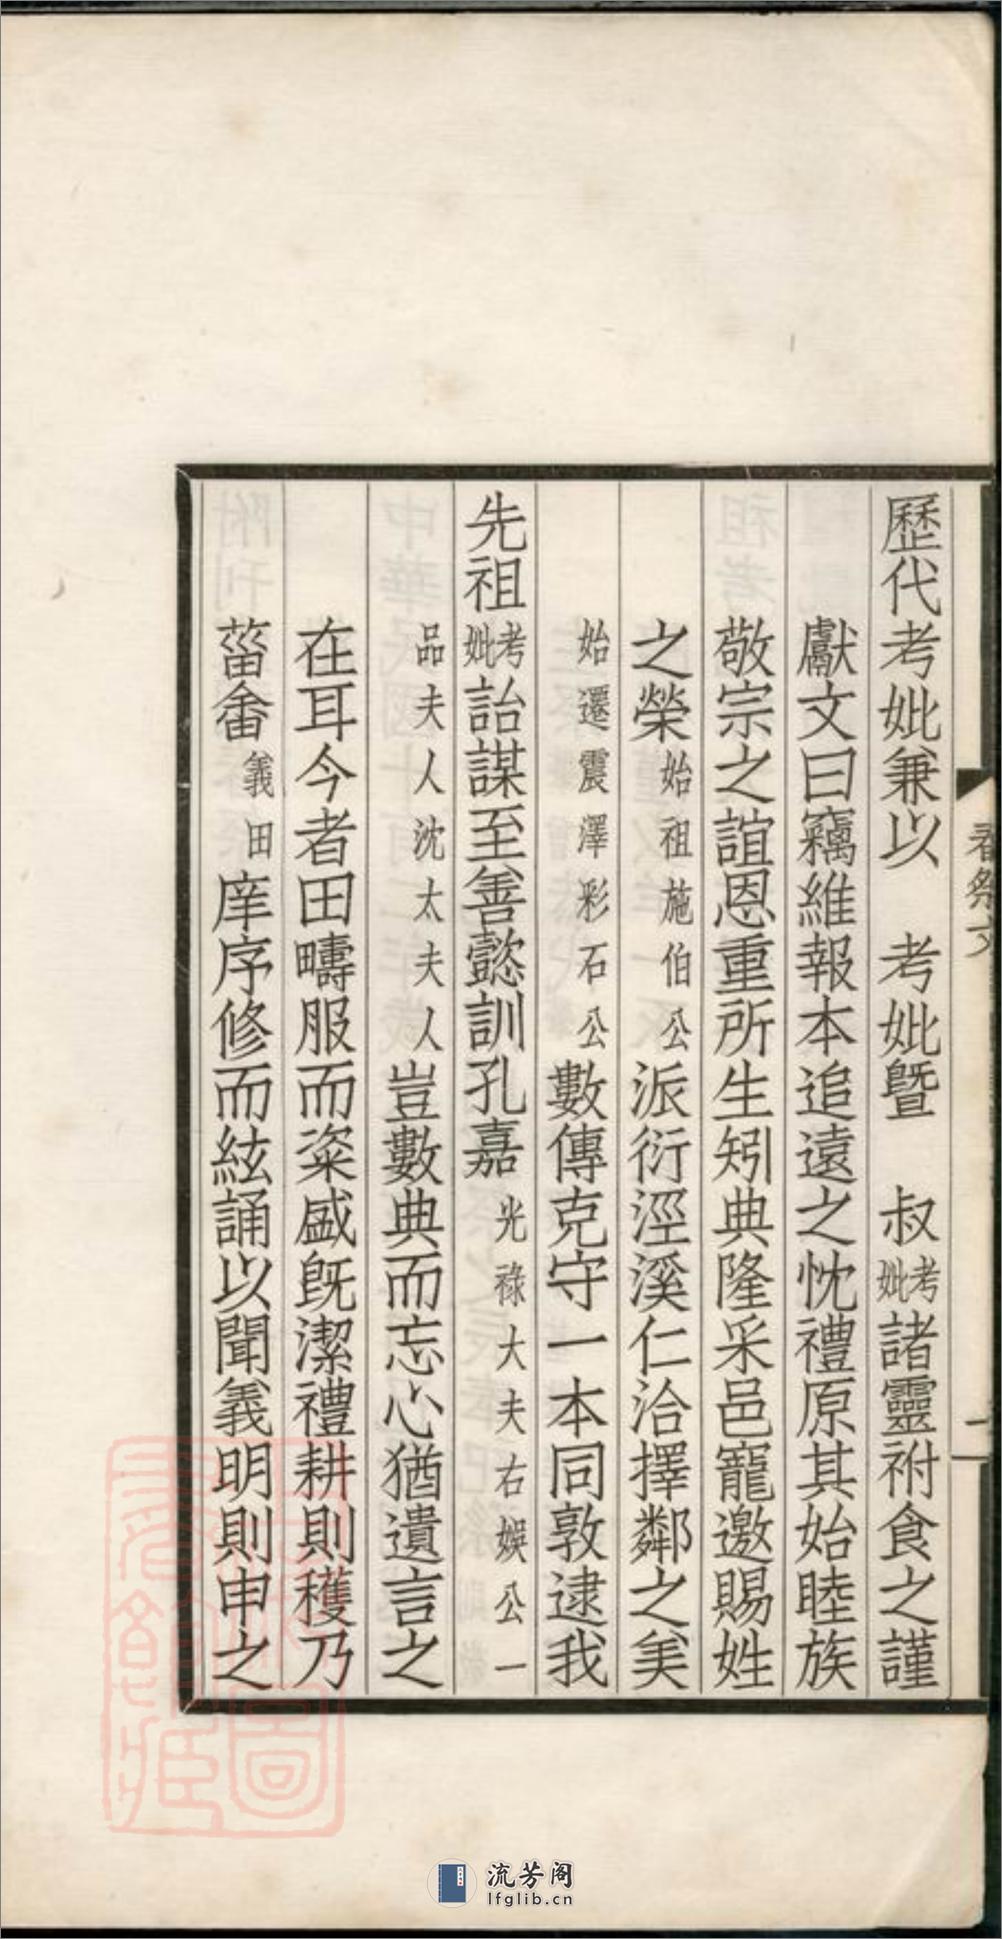 歷代考妣兼以　考妣曁　叔考妣諸靈祔食之謹
獻文曰竊維報本追遠之忱禮原其始睦族
敬宗之誼恩重所生矧典隆采邑寵邀賜姓
之榮始祖施伯公派衍溼溪仁洽擇鄰之美
始遷震澤彩石公數傳克守一本同敦逮我
先祖考妣詒謀至善懿訓孔嘉光祿大夫右娛公一
品夫人沈太夫人豈數典而忘心猶遺言之
在耳今者田疇服而粢盛旣潔禮耕則穫乃
菑畬義田庠序修而絃誦以聞義明則申之
春祭文
一
流芳阁
lfglib.cn